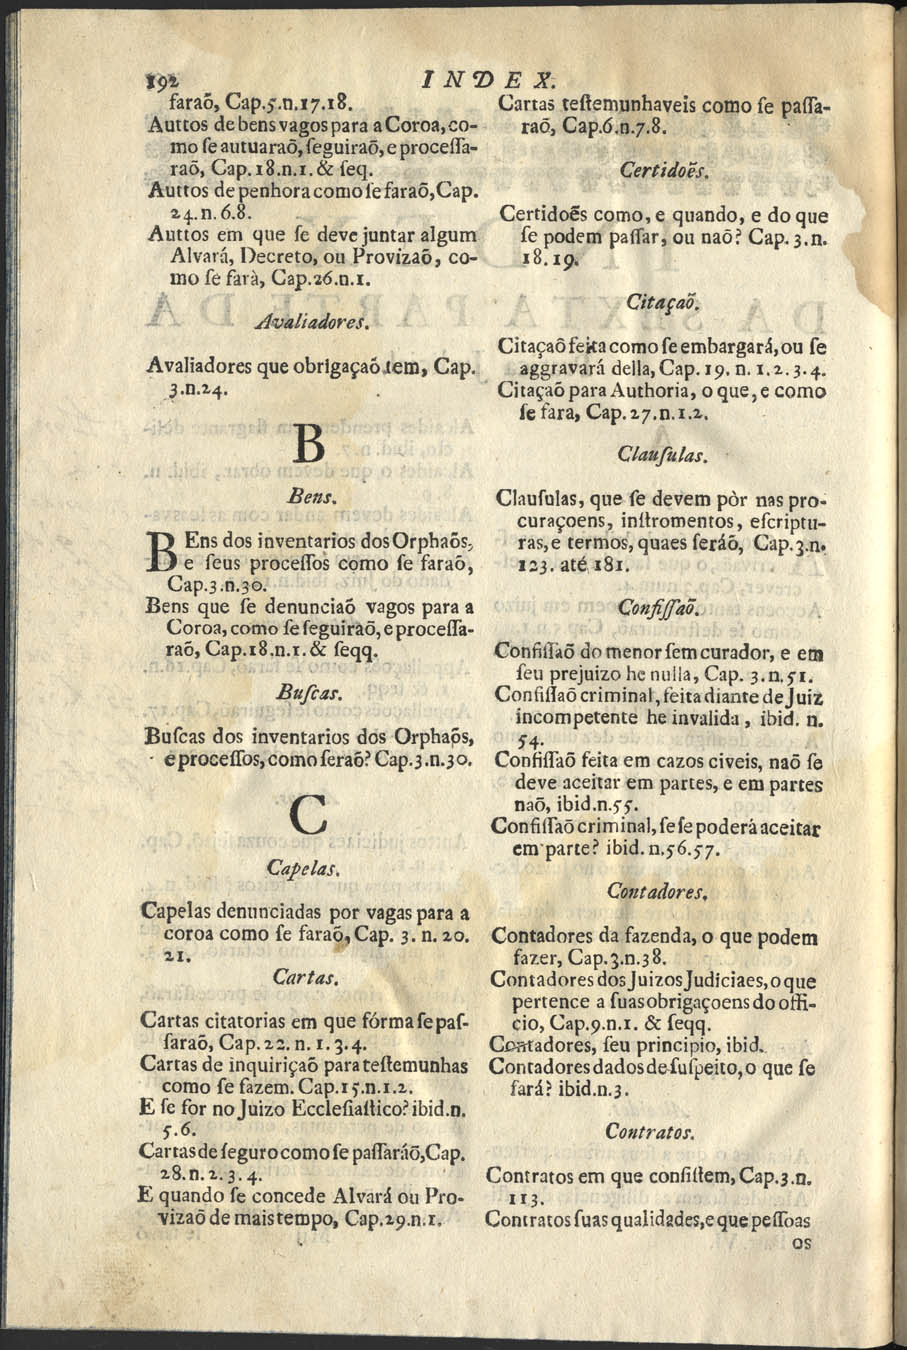 192
INDEX.
ſaraõ, Cap.5.n.17.18.
Auttos de bens vagos para a Coroa, co-
mo ſe autuaraõ, ſeguiraõ, e proceſſa-
raõ, Cap.18.n.1.& ſeq.
Auttos de penhora como ſe faraõ, Cap.
24.n.6.8.
Auttos em que ſe deve juntar algum
Alvará, Decreto, ou Provizaõ, co-
mo ſe farà, Cap.26.n.1.
Avaliadores.
Avaliadores que obrigaçaõ tem, Cap.
3.n.24.
B
Bens.
BEns dos inventarios dos Orphaõs,
e ſeus proceſſos como ſe faraõ,
Cap.3.n.30.
Bens que ſe denunciaõ vagos para a
Coroa, como ſe ſeguiraõ, e proceſſa-
raõ, Cap.18.n.1.& ſeqq.
Buſcas.
Buſcas dos inventarios dos Orphaõs,
e proceſſos, como ſeraõ? Cap.3.n.30.
C
Capelas.
Capelas denunciadas por vagas para a
coroa como ſe faraõ, Cap. 3. n. 20.
21.
Cartas.
Cartas citatorias em que fórma ſe paſ-
ſaraõ, Cap.22. n. 1. 3.4.
Cartas de inquiriçaõ para teſtemunhas
como ſe fazem. Cap.15.n.1.2.
E ſe for no Juizo Eccleſiaſtico? ibid.n.
5.6.
Cartas de ſeguro como ſe paſſaráõ, Cap.
28.n.2.3.4.
E quando ſe concede Alvará ou Pro-
vizaõ de mais tempo, Cap.29.n.1.
Cartas teſtemunhaveis como ſe paſſa-
raõ, Cap.6.n.7.8.
Certidoẽs.
Certidoẽs como, e quando, e do que
ſe podem paſſar, ou naõ? Cap. 3. n.
18.19.
Citaçaõ.
Citaçaõ feita como ſe embargará, ou ſe
aggravará della, Cap. 19. n. 1.2.3.4.
Citaçaõ para Authoria, o que, e como
ſe fara, Cap.27.n.1.2.
Clauſulas.
Clauſulas, que ſe devem pòr nas pro-
curaçoens, inſtromentos, eſcriptu-
ras, e termos, quaes ſeráõ, Cap.3.n.
123. até 181.
Confiſſaõ.
Confiſſaõ do menor ſem curador, e em
ſeu prejuizo he nulla, Cap. 3.n.51.
Confiſſaõ criminal, feita diante de Juiz
incompetente he invalida, ibid. n.
54.
Confiſſaõ feita em cazos civeis, naõ ſe
deve aceitar em partes, e em partes
naõ, ibid.n.55.
Confiſſaõ criminal, ſe ſe poderá aceitar
em parte? ibid. n.56.57.
Contadores.
Contadores da fazenda, o que podem
fazer, Cap.3.n.38.
Contadores dos Juizos Judiciaes, o que
pertence a ſuas obrigaçoens do offi-
cio, Cap.9.n.1. & ſeqq.
Contadores, ſeu principio, ibid.
Contadores dados de ſuſpeito, o que ſe
fará? ibid.n.3.
Contratos.
Contratos em que conſiſtem, Cap.3.n.
113.
Contratos ſuas qualidades, e que peſſoas
os